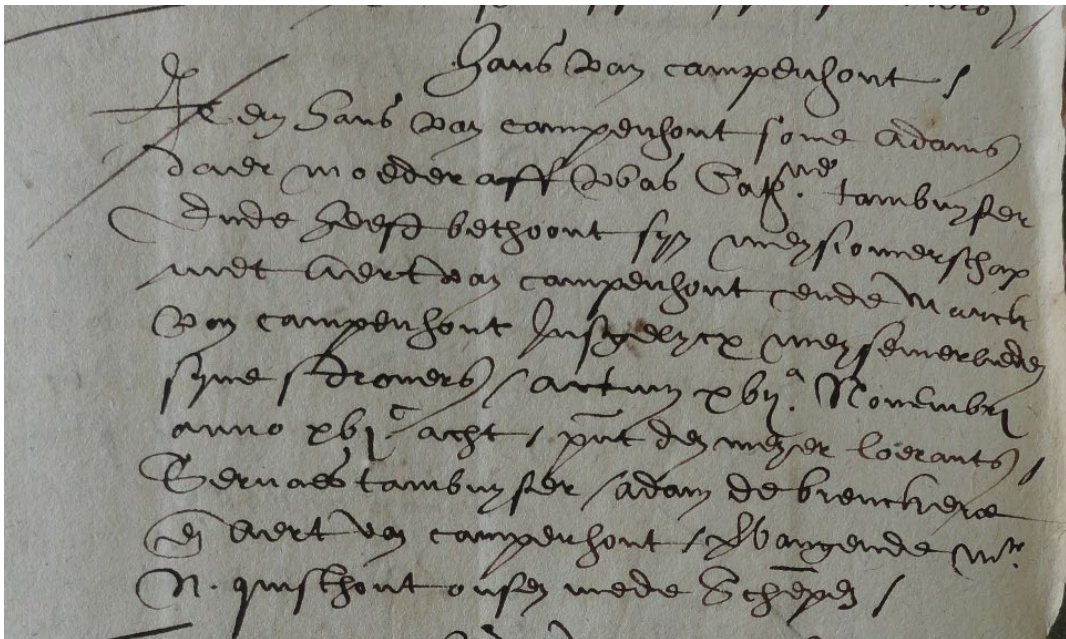 Hans van campenhout /
Item Hans van campenhout sone Adams
daer moeder aff was Cath.ne tambuyser
Ende heeft bethoont syn meysenierschap
met Aert van campenhout ende Marck
van campenhout Insgelycx meyseniers
syne / actum xvij.a Novembri
anno xvj.c acht / pnt den meyer loerants /
Gervaes tambuyser / adam de
en Aert van campenhout / vervangende mr.
N. quisthout onsen mede Schepen /